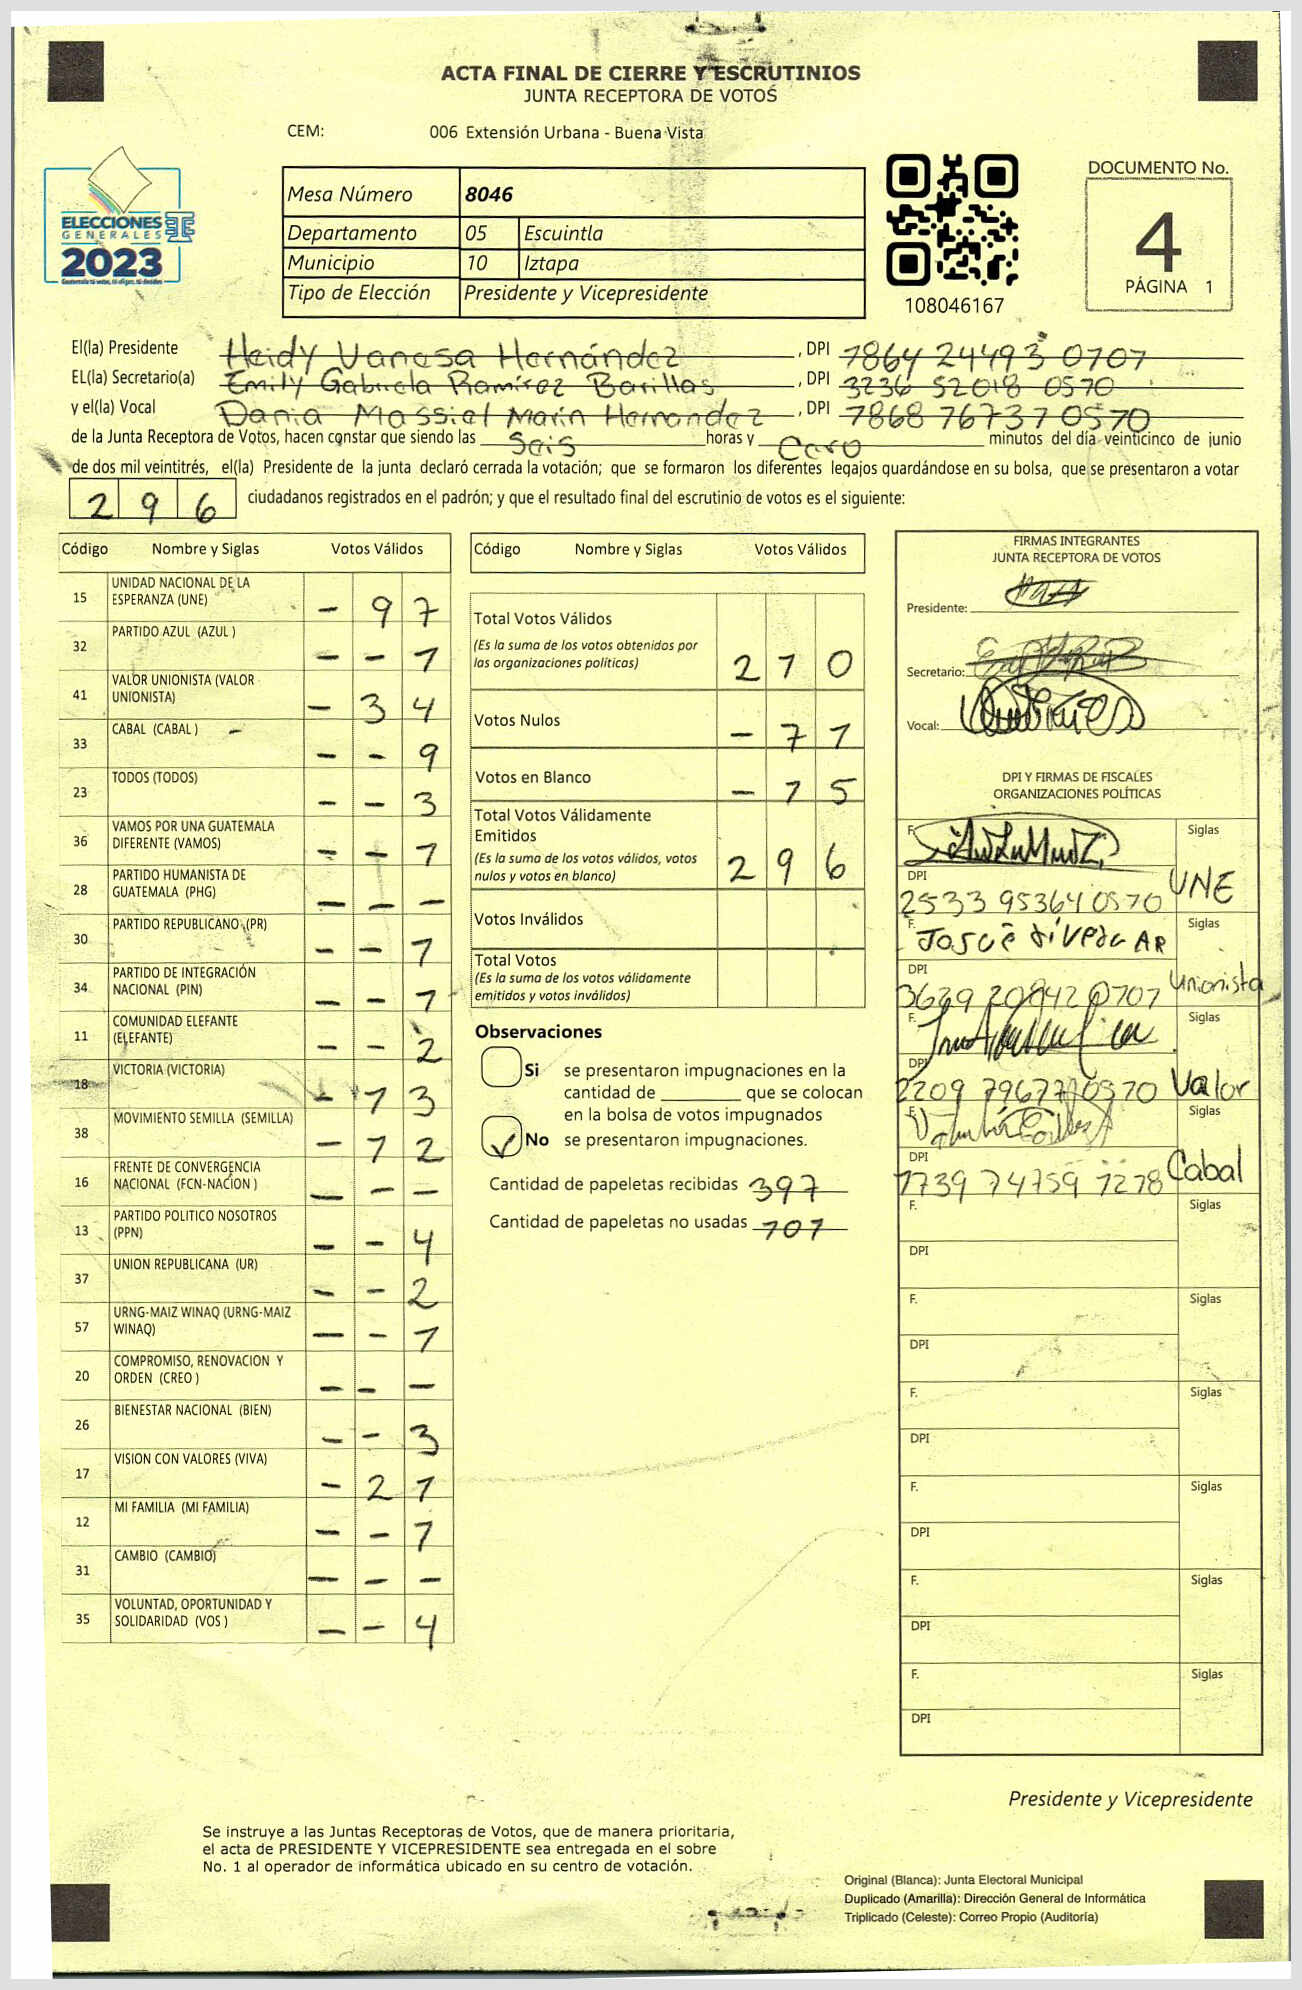 ACTA FINAL DE CIERRE Y ESCRUTINIOS
JUNTA RECEPTORA DE VOTOS
CEM: 006 Extensión Urbana - Buena Vista
ELECCIONES
GENERALES
2023
TSE
Mesa Número 8046
Departamento 05 Escuintla
Municipio 10 Iztapa
Tipo de Elección Presidente y Vicepresidente
108046167
DOCUMENTO No.
4
PÁGINA 1
El(la) Presidente Heidy Vanesa Hernández , DPI 1864 24493 0707
EL(la) Secretario(a) Emily Gabriela Ramírez Barillas , DPI 3236 52018 0570
y el(la) Vocal Dania Massiel Marín Hernandez , DPI 1868 76737 0570
de la Junta Receptora de Votos, hacen constar que siendo las Seis horas y Cero minutos del día veinticinco de junio
de dos mil veintitrés, el(la) Presidente de la junta declaró cerrada la votación; que se formaron los diferentes legajos guardándose en su bolsa, que se presentaron a votar
296 ciudadanos registrados en el padrón; y que el resultado final del escrutinio de votos es el siguiente:
Código Nombre y Siglas Votos Válidos
15 UNIDAD NACIONAL DE LA ESPERANZA (UNE) - 9 7
32 PARTIDO AZUL (AZUL ) - - 1
41 VALOR UNIONISTA (VALOR UNIONISTA) - 3 4
33 CABAL (CABAL ) - - 9
23 TODOS (TODOS) - - 3
36 VAMOS POR UNA GUATEMALA DIFERENTE (VAMOS) - - 1
28 PARTIDO HUMANISTA DE GUATEMALA (PHG) - - -
30 PARTIDO REPUBLICANO (PR) - - 1
34 PARTIDO DE INTEGRACIÓN NACIONAL (PIN) - - 1
11 COMUNIDAD ELEFANTE (ELEFANTE) - - 2
18 VICTORIA (VICTORIA) - 1 3
38 MOVIMIENTO SEMILLA (SEMILLA) - 1 2
16 FRENTE DE CONVERGENCIA NACIONAL (FCN-NACION ) - - -
13 PARTIDO POLITICO NOSOTROS (PPN) - - 4
37 UNION REPUBLICANA (UR) - - 2
57 URNG-MAIZ WINAQ (URNG-MAIZ WINAQ) - - 1
20 COMPROMISO, RENOVACION Y ORDEN (CREO ) - - -
26 BIENESTAR NACIONAL (BIEN) - - 3
17 VISION CON VALORES (VIVA) - 2 1
12 MI FAMILIA (MI FAMILIA) - - 1
31 CAMBIO (CAMBIO) - - -
35 VOLUNTAD, OPORTUNIDAD Y SOLIDARIDAD (VOS ) - - 4
Código Nombre y Siglas Votos Válidos
Total Votos Válidos
(Es la suma de los votos obtenidos por
las organizaciones políticas) 2 1 0
Votos Nulos - 7 1
Votos en Blanco - 1 5
Total Votos Válidamente
Emitidos
(Es la suma de los votos válidos, votos
nulos y votos en blanco) 2 9 6
Votos Inválidos
Total Votos
(Es la suma de los votos válidamente
emitidos y votos inválidos)
Observaciones
Si se presentaron impugnaciones en la
cantidad de ________ que se colocan
en la bolsa de votos impugnados
No se presentaron impugnaciones.
Cantidad de papeletas recibidas 397
Cantidad de papeletas no usadas 101
FIRMAS INTEGRANTES
JUNTA RECEPTORA DE VOTOS
Presidente:
Secretario:
Vocal:
DPI Y FIRMAS DE FISCALES
ORGANIZACIONES POLÍTICAS
F. Siglas
DPI UNE
2533 95364 0570
F. Siglas
DPI Unionista
F. Siglas
DPI Valor
F. Siglas
DPI Cabal
1739 74759 1218
F. Siglas
DPI
F. Siglas
DPI
F. Siglas
DPI
F. Siglas
DPI
F. Siglas
DPI
F. Siglas
DPI
Presidente y Vicepresidente
Se instruye a las Juntas Receptoras de Votos, que de manera prioritaria,
el acta de PRESIDENTE Y VICEPRESIDENTE sea entregada en el sobre
No. 1 al operador de informática ubicado en su centro de votación.
Original (Blanca): Junta Electoral Municipal
Duplicado (Amarilla): Dirección General de Informática
Triplicado (Celeste): Correo Propio (Auditoría)